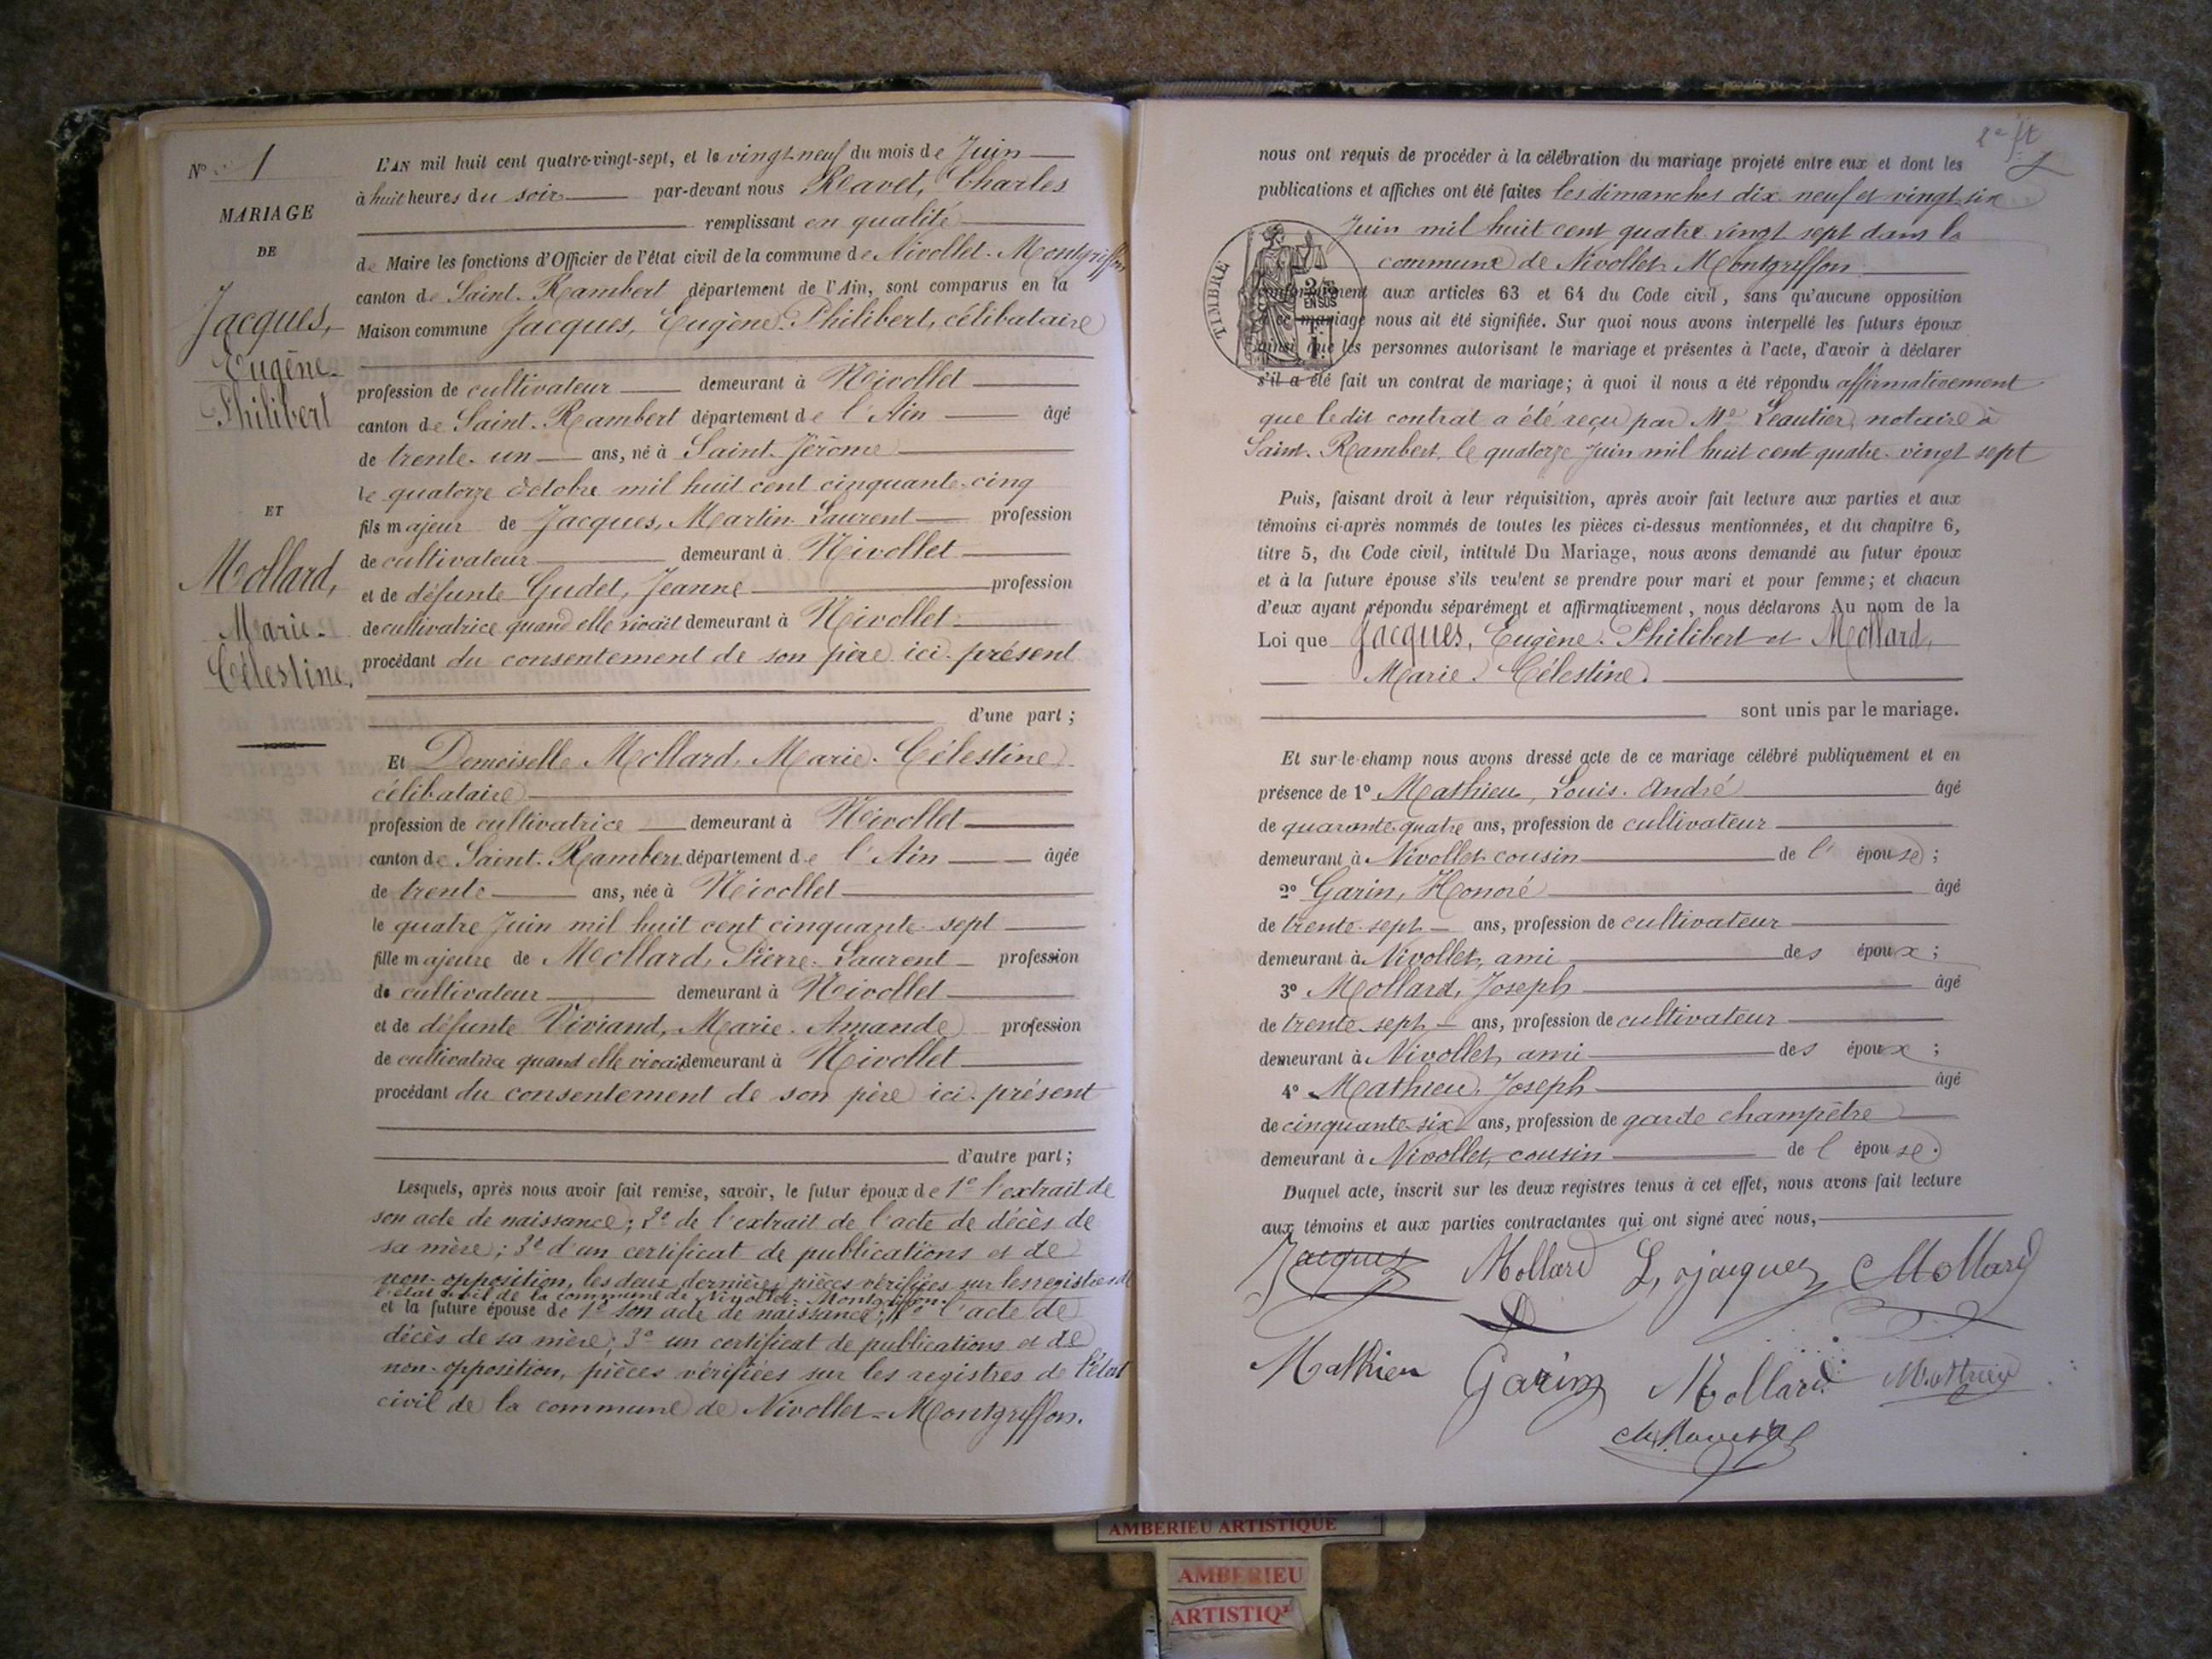 N° 1
MARIAGE
DE
Jacques,
Eugène-
Philibert
ET
Mollard,
Marie-
Célestine.
L'AN mil huit cent quatre-vingt-sept, et le vingt-neuf du mois de Juin
à huit heures du soir par-devant nous Ravet, Charles
remplissant en qualité
de Maire les fonctions d'Officier de l'état civil de la commune de Nivollet-Montgriffon
canton de Saint-Rambert département de l'Ain, sont comparus en la
Maison commune Jacques, Eugène-Philibert, célibataire
profession de cultivateur demeurant à Nivollet
canton de Saint-Rambert département de l'Ain âgé
de trente-un ans, né à Saint-Jérôme
le quatorze octobre mil huit cent cinquante-cinq
fils majeur de Jacques, Martin-Laurent profession
de cultivateur demeurant à Nivollet
et de défunte Gudet, Jeanne profession
de cultivatrice quand elle vivait demeurant à Nivollet
procédant du consentement de son père ici présent
d'une part;
Et Demoiselle Mollard, Marie-Célestine
célibataire
profession de cultivatrice demeurant à Nivollet
canton de Saint-Rambert département de l'Ain âgée
de trente ans, née à Nivollet
le quatre Juin mil huit cent cinquante-sept
fille majeure de Mollard, Pierre-Laurent profession
de cultivateur demeurant à Nivollet
et de défunte Viviand, Marie-Amande profession
de cultivatrice quand elle vivait demeurant à Nivollet
procédant du consentement de son père ici présent
d'autre part;
Lesquels, après nous avoir fait remise, savoir, le futur époux de 1° l'extrait de
son acte de naissance; 2° de l'extrait de l'acte de décès de
sa mère; 3° d'un certificat de publications et de
non-opposition, les deux dernières pièces vérifiées sur les registres de
l'état civil de la commune de Nivollet-Montgriffon.
et la future épouse de 1° son acte de naissance; l'acte de
décès de sa mère; 3° un certificat de publications et de
non-opposition, pièces vérifiées sur les registres de l'état
civil de la commune de Nivollet-Montgriffon.
nous ont requis de procéder à la célébration du mariage projeté entre eux et dont les
publications et affiches ont été faites les dimanches dix-neuf et vingt-six
Juin mil huit cent quatre-vingt-sept dans la
commune de Nivollet-Montgriffon
TIMBRE
2/10 EN SUS
conformément aux articles 63 et 64 du Code civil, sans qu'aucune opposition
à ce mariage nous ait été signifiée. Sur quoi nous avons interpellé les futurs époux
ainsi que les personnes autorisant le mariage et présentes à l'acte, d'avoir à déclarer
s'il a été fait un contrat de mariage; à quoi il nous a été répondu affirmativement
que ledit contrat a été reçu par Me Leautier, notaire à
Saint-Rambert, le quatorze Juin mil huit cent quatre-vingt sept
Puis, faisant droit à leur réquisition, après avoir fait lecture aux parties et aux
témoins ci-après nommés de toutes les pièces ci-dessus mentionnées, et du chapitre 6,
titre 5, du Code civil, intitulé Du Mariage, nous avons demandé au futur époux
et à la future épouse s'ils veulent se prendre pour mari et pour femme; et chacun
d'eux ayant répondu séparément et affirmativement, nous déclarons Au nom de la
Loi que Jacques, Eugène-Philibert et Mollard,
Marie-Célestine.
sont unis par le mariage.
Et sur-le-champ nous avons dressé acte de ce mariage célébré publiquement et en
présence de 1° Mathieu, Louis-André âgé
de quarante-quatre ans, profession de cultivateur
demeurant à Nivollet cousin de l'épouse;
2° Garin, Honoré âgé
de trente-sept ans, profession de cultivateur
demeurant à Nivollet, ami des époux;
3° Mollard, Joseph âgé
de trente-sept ans, profession de cultivateur
demeurant à Nivollet, ami des époux;
4° Mathieu, Joseph âgé
de cinquante-six ans, profession de garde champêtre
demeurant à Nivollet, cousin de l'épouse.
Duquel acte, inscrit sur les deux registres tenus à cet effet, nous avons fait lecture
aux témoins et aux parties contractantes qui ont signé avec nous,
Jacques Mollard L, Jacquez Mollard
Mathieu Garin Mollard Mathieu
AMBERIEU ARTISTIQUE
AMBERIEU
ARTISTIQ